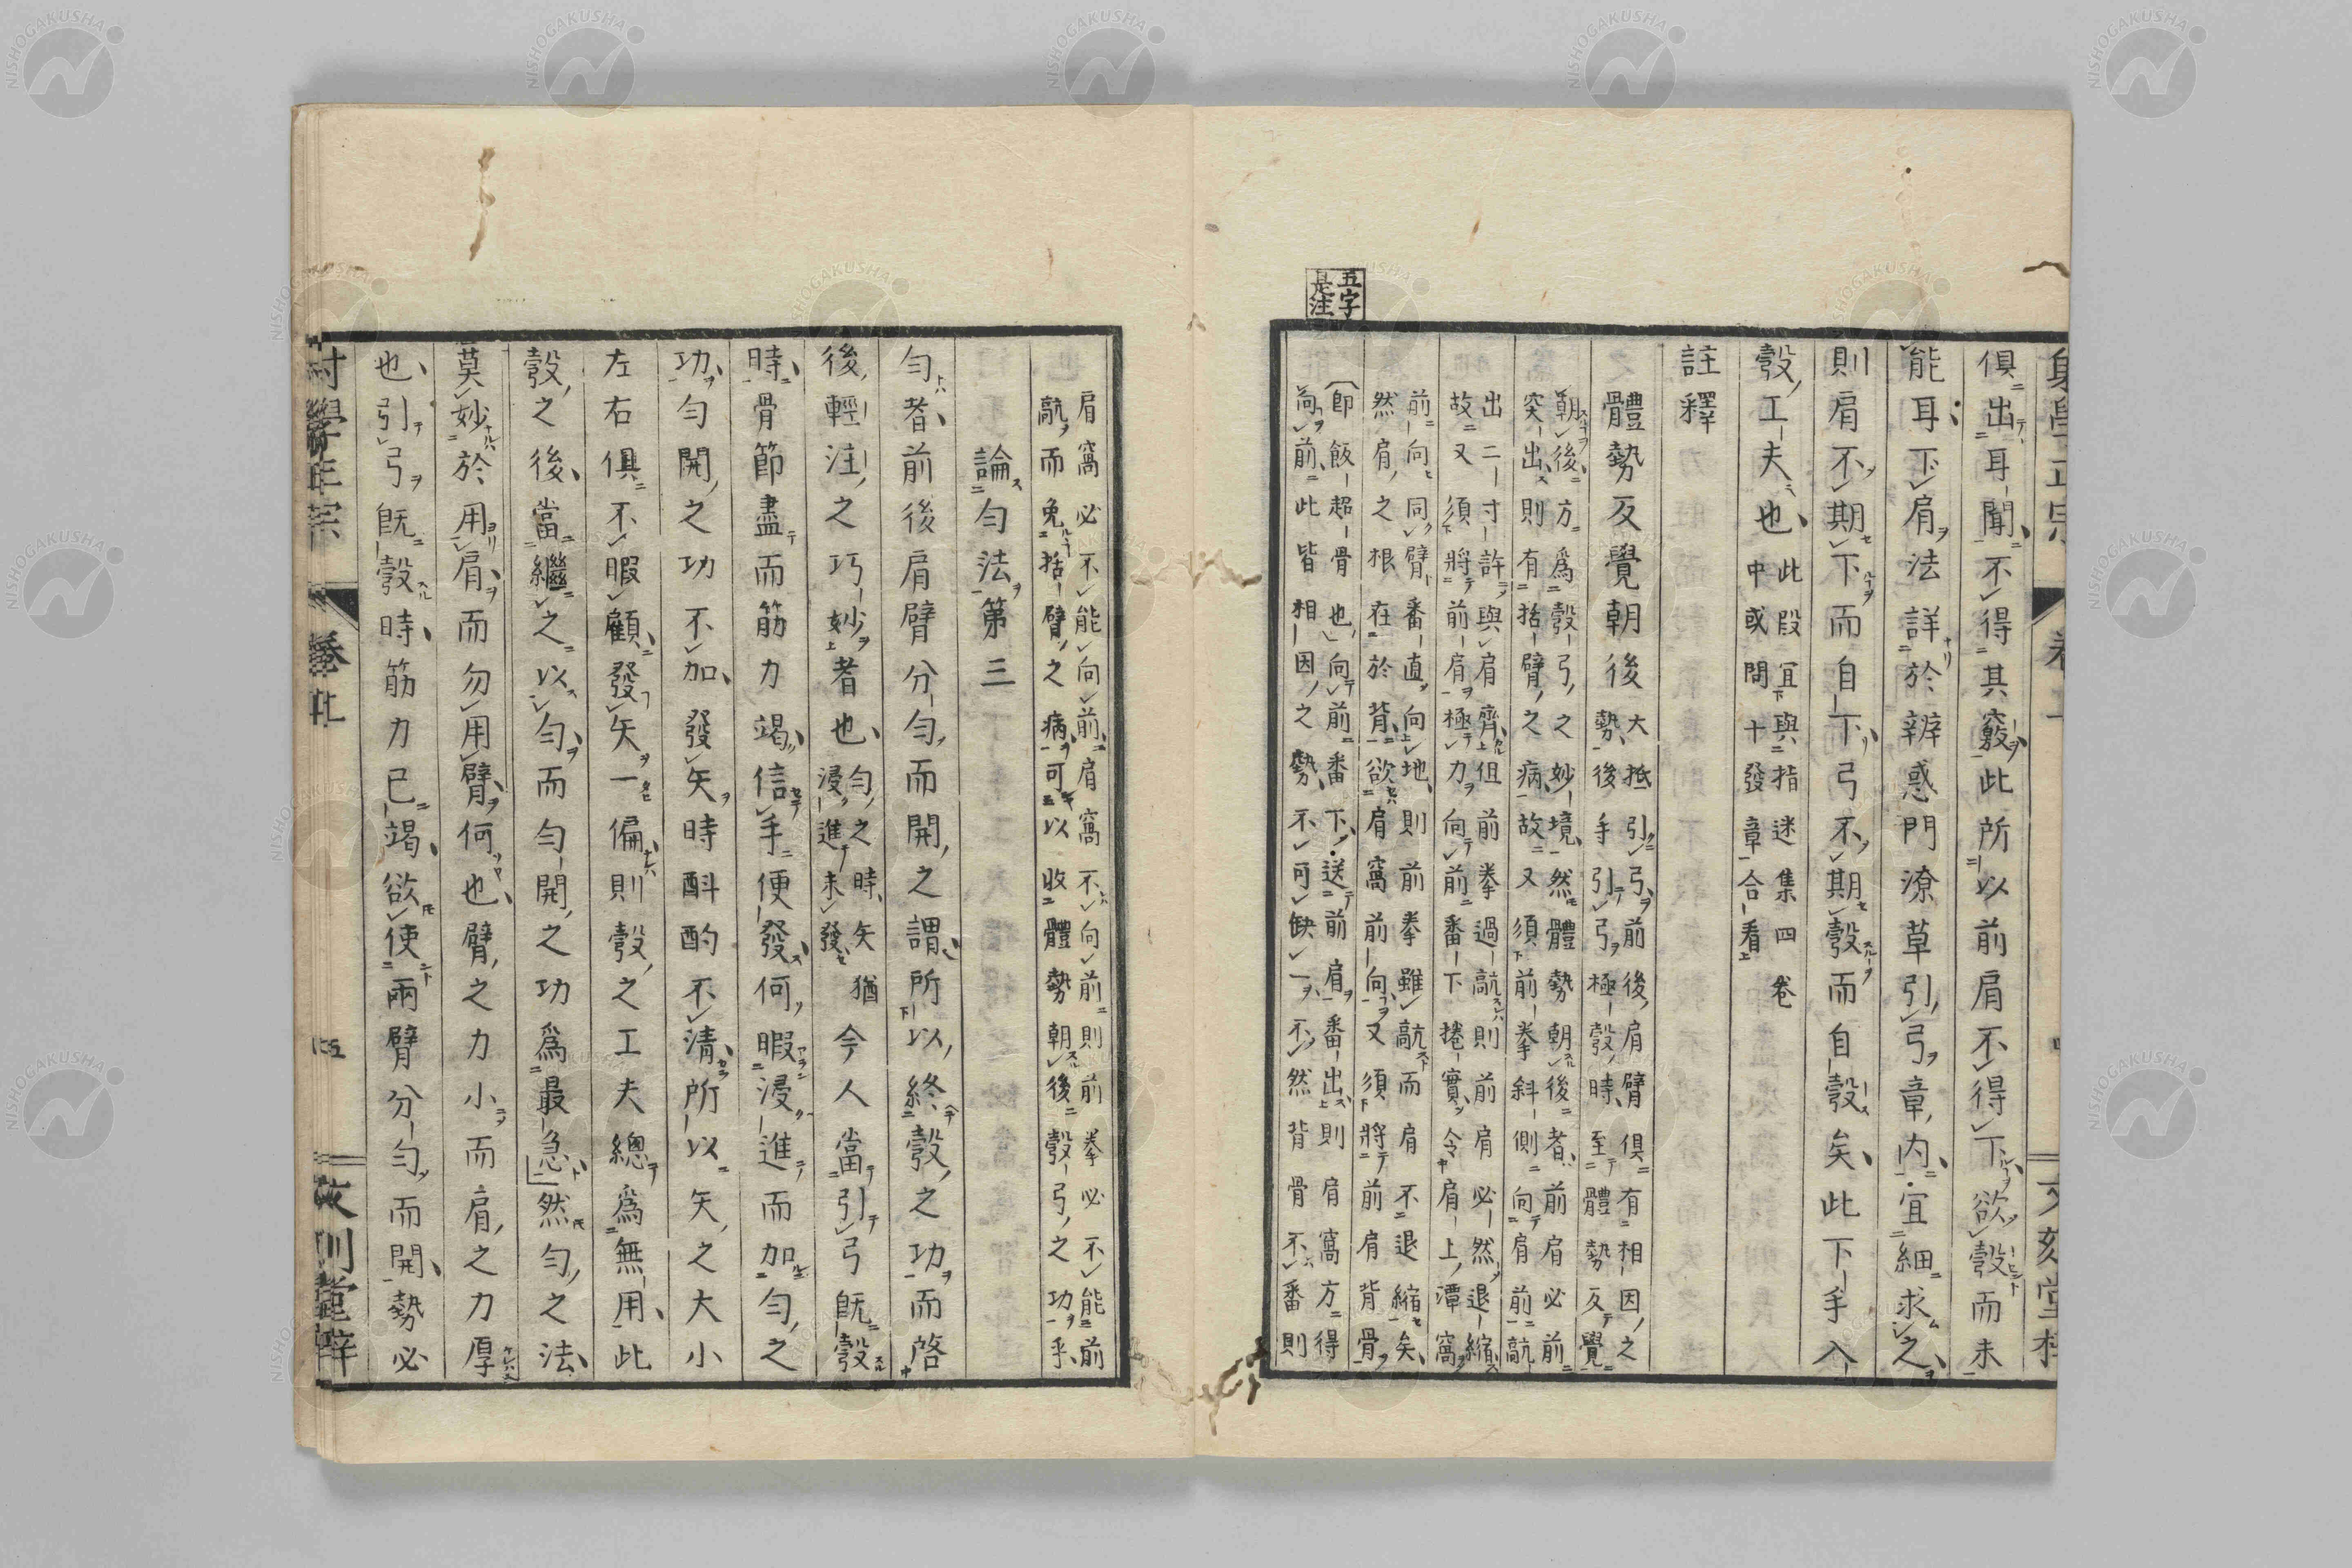 俱出耳聞不得其竅此所以前肩不得下欲彀而未
能耳下肩法詳於辨惑門潦草引弓章内宜細求之
則肩不期下而自下弓不期彀而自彀矣此下手入
彀工夫也此段宜與指迷集四卷
中或問十發章合看
註釋
體勢反覺朝後大抵引弓前後肩臂俱有相因之
勢後手引弓極彀時至體勢反覺
朝後方爲彀弓之妙境然體勢朝後者前肩必前
突出則有括臂之病故又須前拳斜側向肩前敲
出二寸許與肩齊但前拳過敲則前肩必然退縮
故又須將前肩極力向前番下捲實令肩上潭窩
前向同臂番直向地則前拳雖敲而肩不退縮矣
然肩之根在於背欲肩窩前向又須將前肩背骨
(卽飯超骨也)向前番下送前肩番出則肩窩方得
向前此皆相因之勢不可缺一不然背骨不番則
五字
是注
肩窩必不能向前肩窩不向前則前拳必不能前
敲而免括臂之病可以收體勢朝後彀弓之功乎
論匀法第三
匀者前後肩臂分匀而開之謂所以終彀之功而啓
後輕注之巧妙者也匀之時矢猶
浸進未發今人當引弓旣彀
時骨節盡而筋力竭信手便發何暇浸進而加匀之
功匀開之功不加發矢時斟酌不清所以矢之大小
左右俱不暇顧發矢一偏則彀之工夫總爲無用此
彀之後當繼之以匀而匀開之功爲最急然匀之法
莫妙於用肩而勿用臂何也臂之力小而肩之力厚
也引弓旣彀時筋力已竭欲使兩臂分匀而開勢必
射學正宗
卷上
五